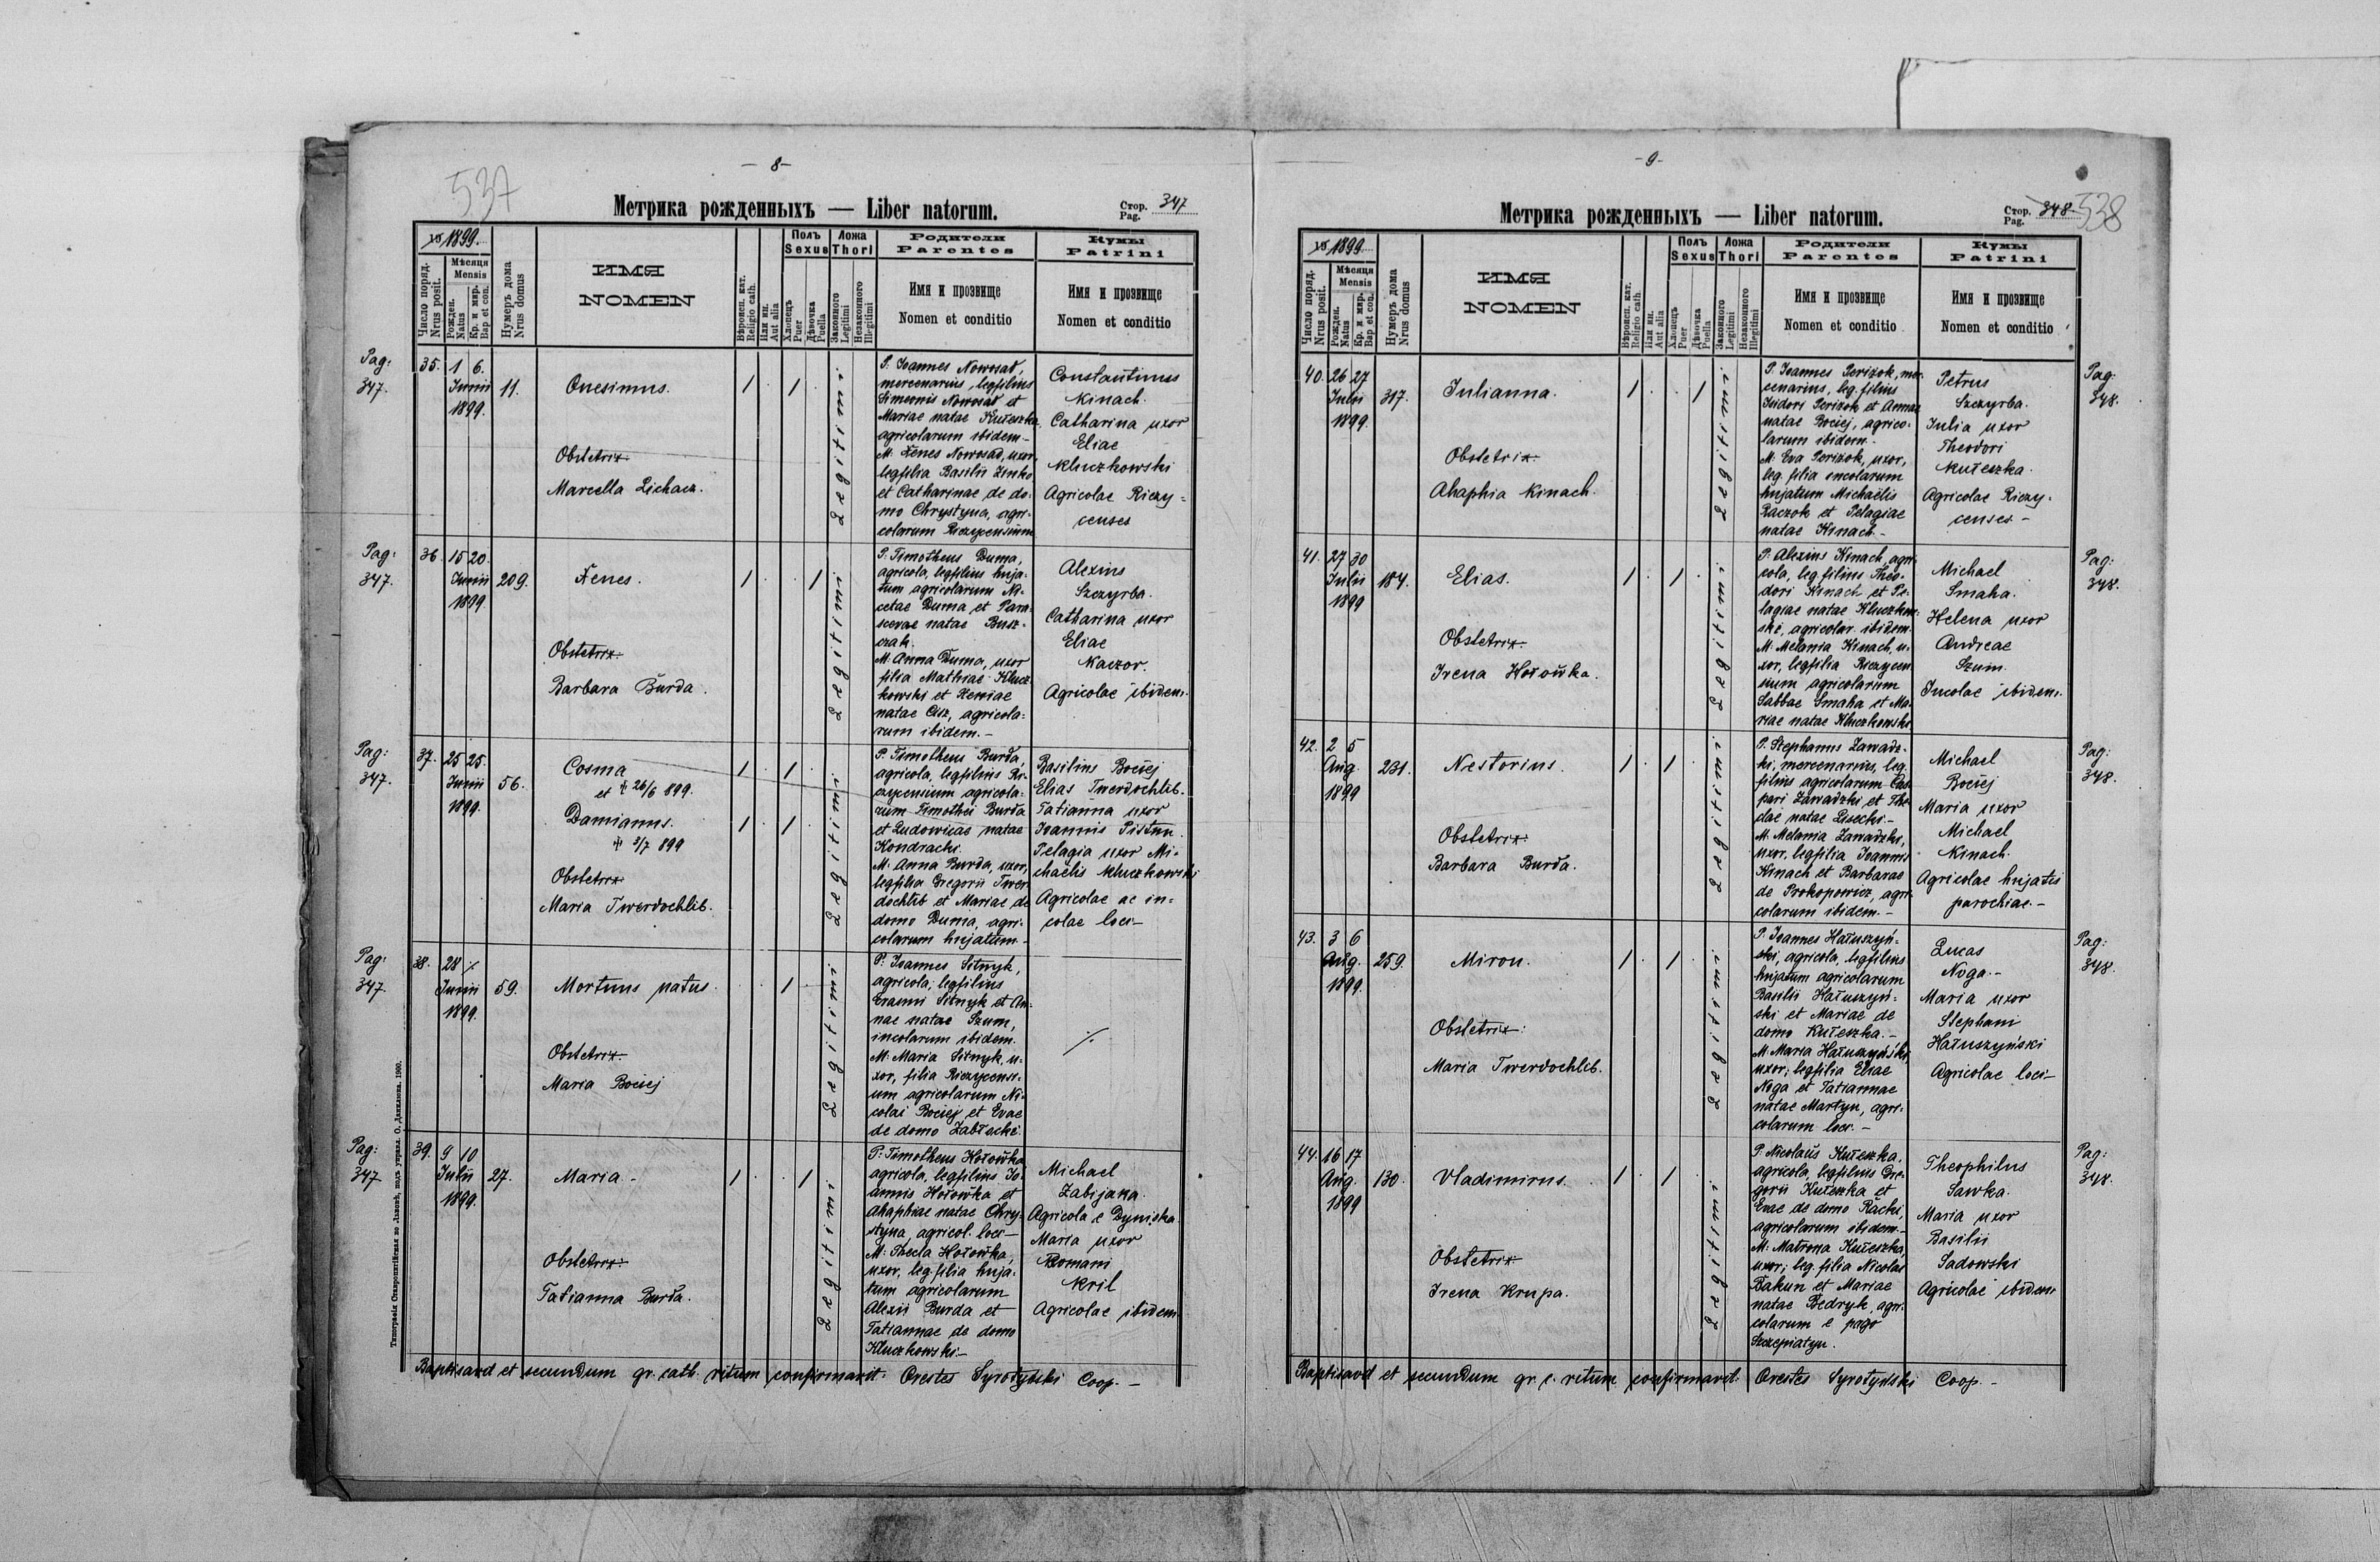 537
- 8 -
Метрика рожденныхъ — Liber natorum.
Стор. Pag. 347
18 1899.
Число поряд. Nrus posit.
Мѣсяця Mensis
Рожден. Natus
Кр. и мир. Bap et con.
Нумеръ дома Nrus domus
ИМЯ
NOMEN
Вѣроисп. кат. Religio cath.
Или ин. Aut alia
Полъ Sexus
Хлопецъ Puer
Дѣвочка Puella
Ложа Thori
Законного Legitimi
Незаконного Illegitimi
Родители
Parentes
Имя и прозвище
Nomen et conditio
Кумы
Patrini
Имя и прозвище
Nomen et conditio
Pag: 347.
35. 1 6. Junii 1899. 11.
Onesimus.
Obstetrix
Marcella Lichacz.
Legitimi
P. Joannes Nowosad,
mercenarius, legfilius
Simeonis Nowosad et
Mariae natae Kułeszka,
agricolarum ibidem -
M. Xenes Nowosad, uxor,
legfilia Basilii Zinko
et Catharinae de do-
mo Chrystyna, agri-
colarum Riczycensium
Constantinus
Kinach.
Catharina uxor
Eliae
Kluczkowski
Agricolae Riczy-
censes
Pag: 347.
36. 15 20. Junii 1899 209.
Xenes.
Obstetrix.
Barbara Burda.
Legitimi
P. Timotheus Duma,
agricola, legfilius huja-
tum agricolarum Ni-
cetae Duma et Para-
scevae natae Busz-
czak.
M. Anna Duma, uxor
filia Mathiae Klucz
kowski et Xeniae
natae Cisz, agricola-
rum ibidem. -
Alexius
Szczyrba.
Catharina uxor
Eliae
Kaczor.
Agricolae ibidem.
Pag: 347.
37. 25 25. Junii 1899. 56.
Cosma
et + 26/6 899.
Damianus.
+ 3/7 899
Obstetrix
Maria Twerdochlib.
Legitimi
P. Timotheus Burda,
agricola, legfilius Ri-
czycensium agricola-
rum Timothei Burda
et Ludovicae natae
Kondracki.
M. Anna Burda, uxor,
legfilia Gregorii Twer-
dochlib et Mariae de
domo Duma, agri-
colarum hujatum -
Basilius Bociej
Elias Twerdochlib.
Tatianna uxor
Joannis Pistun.
Pelagia uxor Mi-
chaelis Kluczkowski
Agricolae ac in-
colae loci -
Pag: 347.
38. 28 ./. Junii 1899. 59.
Mortuus natus.
Obstetrix.
Maria Bociej
Legitimi
P. Joannes Sitnyk,
agricola, legfilius
Erasmi Sitnyk et An-
nae natae Szum,
incolarum ibidem.
M. Maria Sitnyk, u-
xor, filia Riczycensi-
um agricolarum Ni-
colai Bociej et Evae
de domo Zabłocki.
./.
Pag: 347
39. 9 10 Julii 1899. 27.
Maria -
Obstetrix.
Tatianna Burda.
Legitimi
P. Timotheus Hołowka
agricola, legfilius Jo-
annis Hołowka et
Ahaphiae natae Chry-
styna, agricol. loci -
M. Thecla Hołowka,
uxor, leg.filia huja-
tum agricolarum
Alexii Burda et
Tatiannae de domo
Kluczkowski -
Michael
Zabijaka.
Agricola e Dyniska.
Maria uxor
Romani
Kril
Agricolae ibidem
Baptisavit et secundum gr. cath. ritum confirmavit: Orestes Syrotyński Coop. -
Типографія Ставропигійская во Львовѣ, подъ управл. О. Данилюка. 1900.
- 9 -
Метрика рожденныхъ — Liber natorum.
Стор. Pag. 348
538
18 1899.
Число поряд. Nrus posit.
Мѣсяця Mensis
Рожден. Natus
Кр. и мир. Bap et con.
Нумеръ дома Nrus domus
ИМЯ
NOMEN
Вѣроисп. кат. Religio cath.
Или ин. Aut alia
Полъ Sexus
Хлопецъ Puer
Дѣвочка Puella
Ложа Thori
Законного Legitimi
Незаконного Illegitimi
Родители
Parentes
Имя и прозвище
Nomen et conditio
Кумы
Patrini
Имя и прозвище
Nomen et conditio
40. 26 27 Julii 1899. 317.
Julianna.
Obstetrix.
Ahaphia Kinach.
Legitimi
P. Joannes Perizok, mer-
cenarius, leg.filius
Isidori Perizok et Annae
natae Bociej, agrico-
larum ibidem. -
M. Eva Perizok, uxor,
leg. filia incolarum
hujatum Michaëlis
Raczok et Pelagiae
natae Kinach. -
Petrus
Szczyrba.
Julia uxor
Theodori
Kułeszka.
Agricolae Riczy-
censes -
Pag: 348.
41. 27 30 Julii 1899 184.
Elias.
Obstetrix.
Irena Hołowka.
Legitimi
P. Alexius Kinach, agri-
cola, leg.filius Theo-
dori Kinach et Pe-
lagiae natae Kluczkow-
ski, agricolar. ibidem.
M. Melania Kinach, u-
xor, legfilia Riczycen
sium agricolarum
Sabbae Smaha et Ma-
riae natae Kluczkowski
Michael
Smaha.
Helena uxor
Andreae
Szum.
Incolae ibidem.
Pag: 348.
42. 2 5 Aug. 1899 231.
Nestorius.
Obstetrix.
Barbara Burda.
Legitimi
P. Stephanus Zawadz-
ki, mercenarius, leg.
filius agricolarum Cas-
pari Zawadzki et The-
clae natae Lisecki. -
M. Melania Zawadzki,
uxor, legfilia Joannis
Kinach et Barbarae
de Prokopowicz, agri-
colarum ibidem. -
Michael
Bociej
Maria uxor
Michael
Kinach.
Agricolae hujatis
parochiae. -
Pag: 348.
43. 3 6 Aug. 1899. 259.
Miron.
Obstetrix:
Maria Twerdochlib.
Legitimi
P. Joannes Hałuszyń-
ski, agricola, legfilius
hujatum agricolarum
Basilii Hałuszyń-
ski et Mariae de
domo Kułeszka. -
M. Maria Hałuszyński,
uxor; legfilia Eliae
Noga et Tatiannae
natae Martyn, agri-
colarum loci. -
Lucas
Noga. -
Maria uxor
Stephani
Hałuszyński
Agricolae loci -
Pag: 348.
44. 16 17 Aug. 1899 130.
Vladimirus.
Obstetrix.
Irena Krupa.
Legitimi
P. Nicolaus Kułeszka,
agricola, legfilius Gre-
gorii Kułeszka et
Evae de domo Racki,
agricolarum ibidem. -
M. Matrona Kułeszka,
uxor; leg.filia Nicolai
Bakun et Mariae
natae Bedryk, agri-
colarum e pago
Szczepiatyn.
Theophilus
Sawka.
Maria uxor
Basilii
Sadowski
Agricolae ibidem
Pag: 348.
Baptisavit et secundum gr. c. ritum confirmavit: Orestes Syrotyński Coop. -